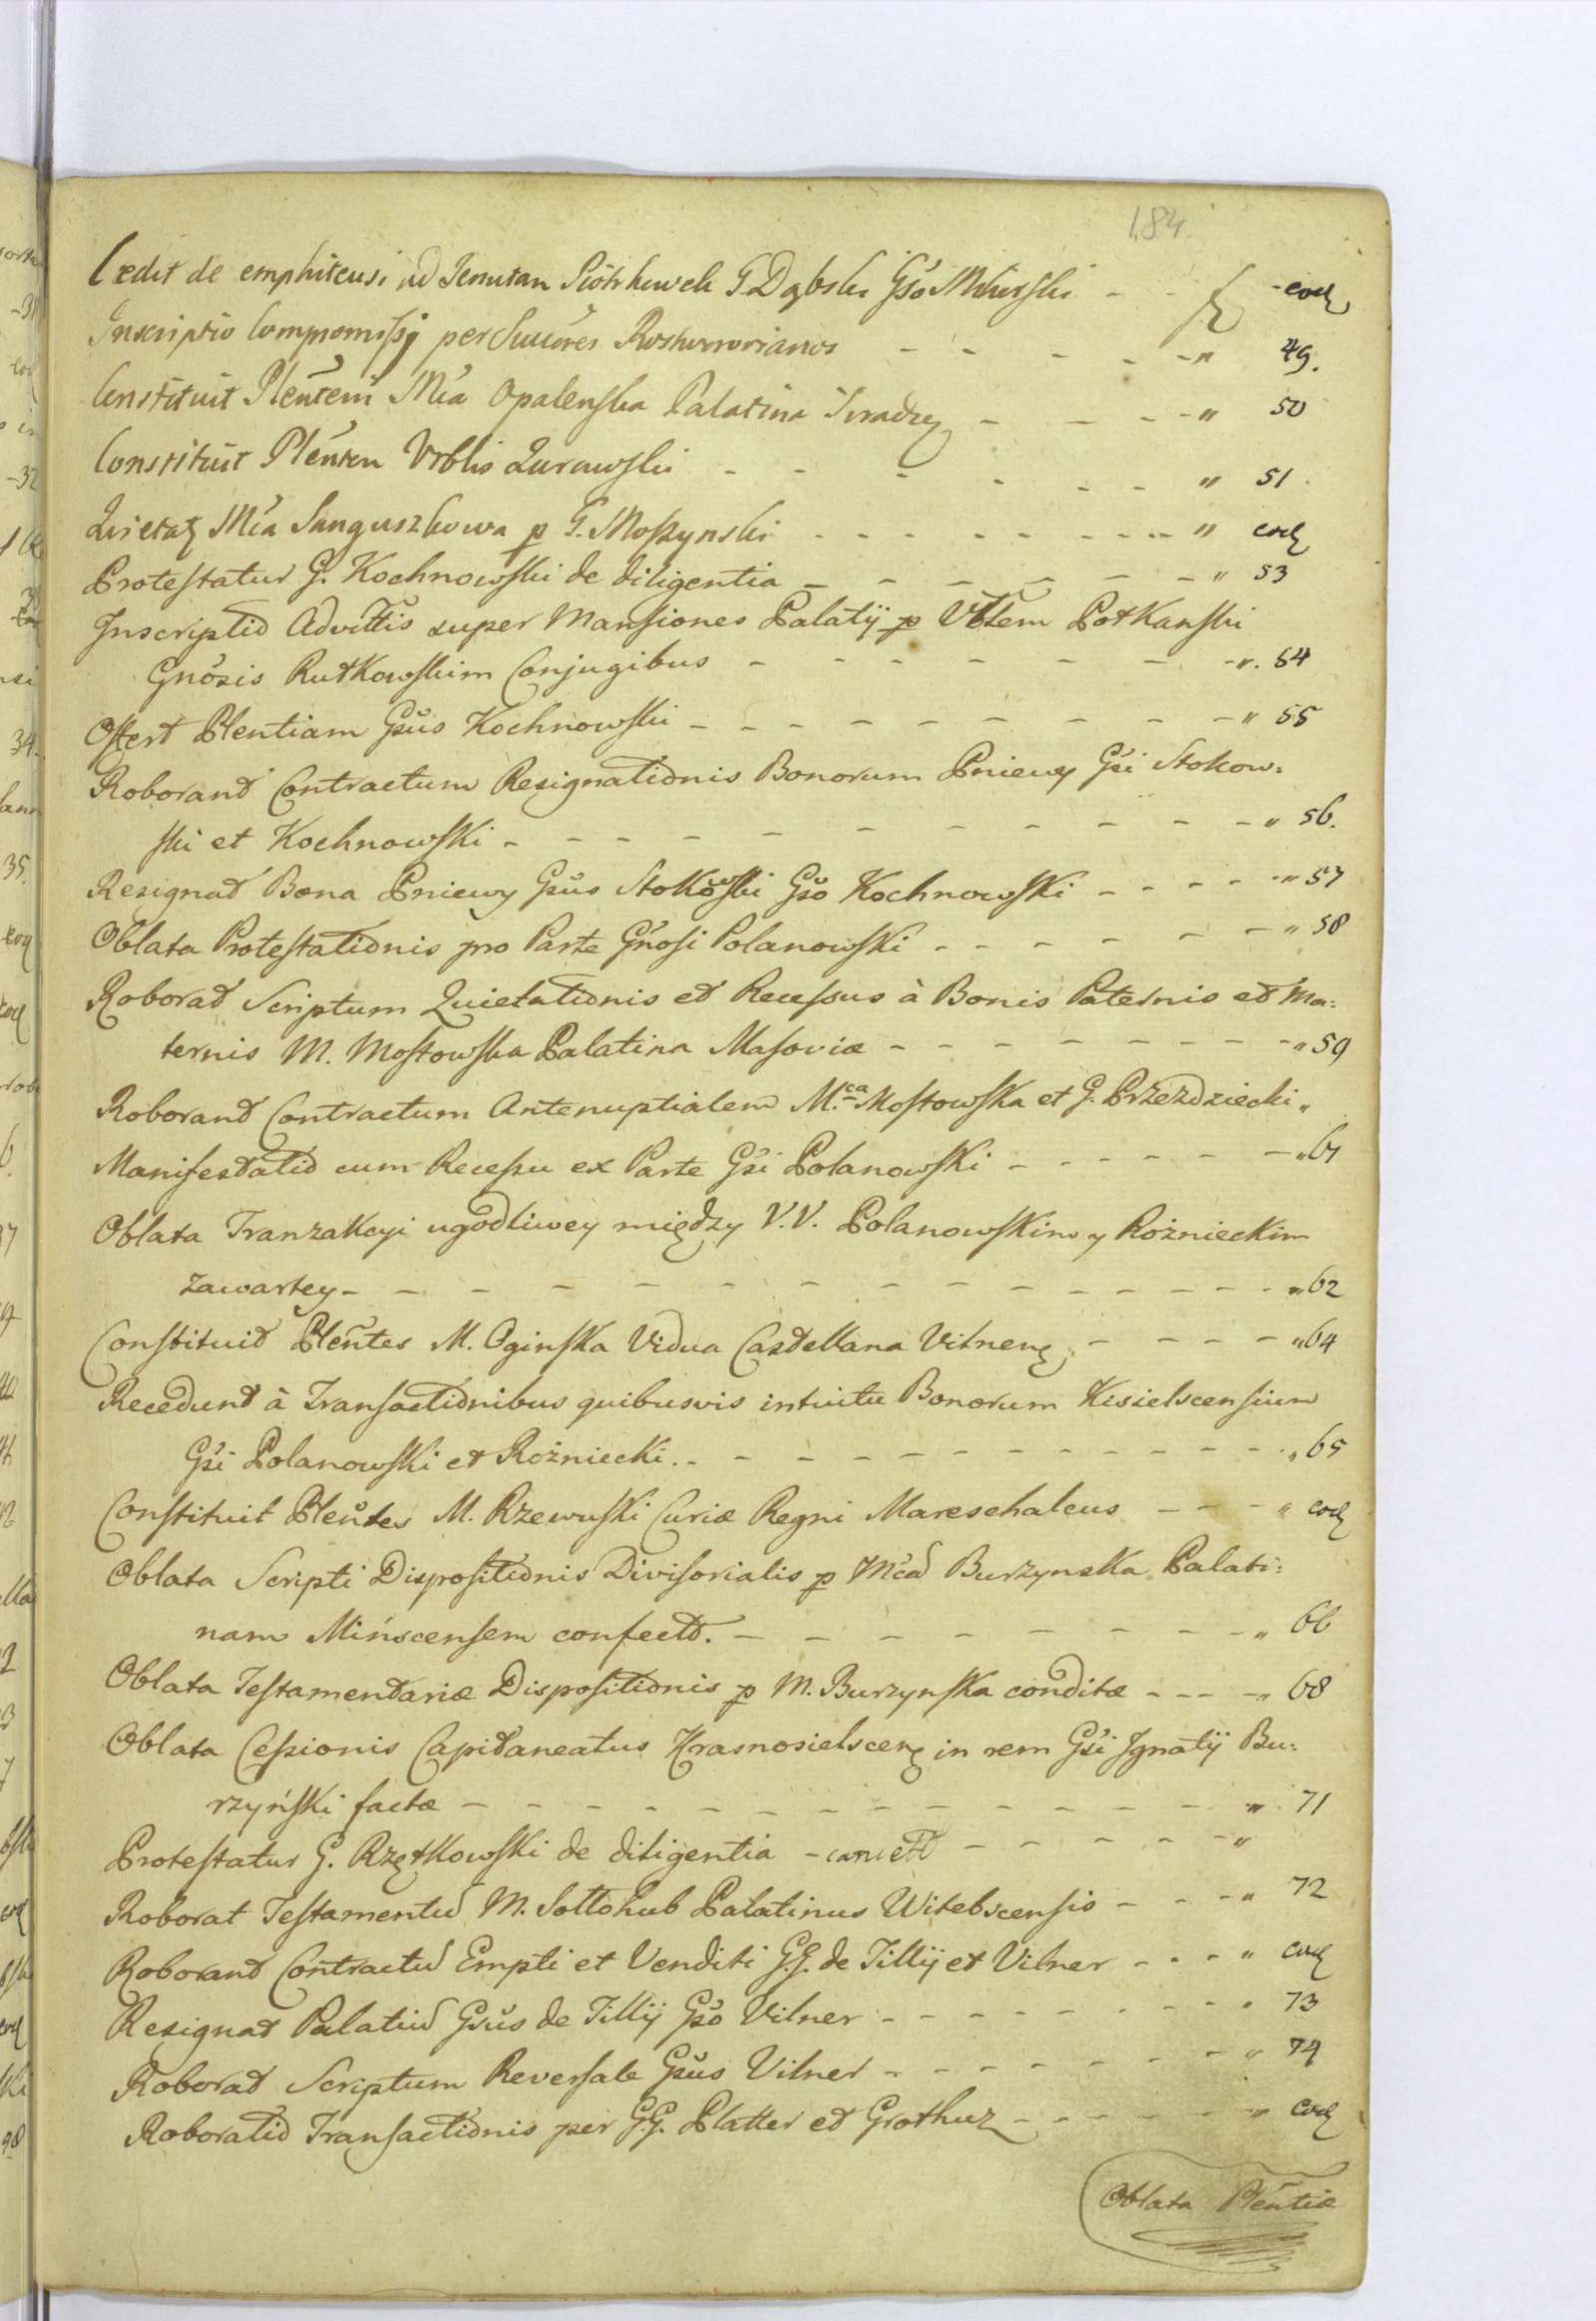 184.
Cedit de emphiteusi ad Tenutam G. Dąbski Gso - - f. eod
Inscriptio Compromissj per - - - - - " 49.
Constituit Plentem Mca Opalenska Palatina Siradzen - - - " 50
Constituit Plenten Urblis Zurawski - - - - - - " 51
Quietat Mca Sanguszkowa p G. Moszynski - - - - - - - - - " eod
Protestatur G. Kochnowski de diligentia - - - - - - " 53
Inscriptio Advittis super Mansiones Palatij p Potkanski
Gnosis Rutkowskim Conjugibus - - - - - - - - ". 54
Offert Plentiam Gsus Kochnowski - - - - - - - - - " 55
Roborant Contractum Resignationis Bonorum Pniewy Gsi Stokow:
ski et Kochnowski - - - - - - - - - - " 56.
Resignat Bona Pniewy Gsus Stokowski Gso Kochnowski - - - - - " 57
Oblata Protestationis pro Parte Gnosi Polanowski - - - - - - - " 58
Roborat Scriptum Quietationis et Recessus à Bonis Paternis et Ma:
ternis M. Mostowska Palatina Masoviæ - - - - - - - - - " 59
Roborant Contractum Antenuptialem M.ca Mostowska et G. Przezdziecki "
Manifestatio cum Recessu ex Parte Gsi Polanowski - - - - - - " 61
Oblata Tranzakcyi ugodliwey między V.V. Polanowskim y Rożnieckim
zawartey - - - - - - - - - - - - - - " 62
Constituit Plentes M. Oginska Vidua Castellana Vilnen - - - - " 64
Recedunt à Transactionibus quibusvis intuitu Bonorum Kisielscensium
Gsi Polanowski et Rożniecki. - - - - - - - - - - - - " 65
Constituit Plentes M. Rzewuski Curiæ Regni Mareschalcus - - - " eod
Oblata Scripti Dispositionis Divisorialis p Mcad Burzynska Palati:
nam Mińscensem confect. - - - - - - - - - " 66
Oblata Testamentariæ Dispositionis p M. Burzynska conditæ - - - - " 68
Oblata Cessionis Capitaneatus Krasnosielscen in rem Gsi Ignatij Bu:
rzyński factæ - - - - - - - - - - - - - " 71
Protestatur G. Rzętkowski de diligentia - - - - - - "
Roborat Testamentu M. Sollohub Palatinus Witebscensis - - - " 72
Roborant Contractu Empti et Venditi G.G. de Tillij et Vilner - - - " eod
Resignat Palatiu Gsus de Tillij Gso Vilner - - - - - - - - 73
Roborat Scriptum Reversale Gsus Vilner - - - - - - - - " 74
Roboratio Transactionis per G.G. Platter et Grothuz - - - - - - " eod
Oblata Plentiæ